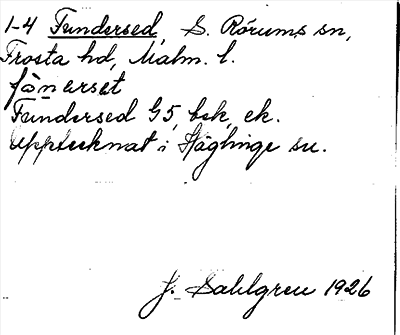 1-4 Fundersed, S. Rörums sn,
Frosta hd, Malm. l.
fönərsət
Fundersed G5, bsk, ek.
Upptecknat i Häglinge sn.
J. Sahlgren 1926